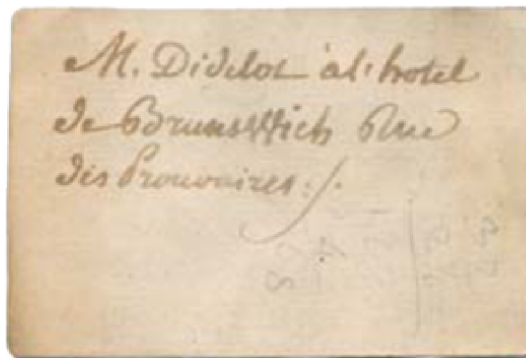 M. Didelot à l'hotel
de Brunswich Rue
des Prouvaires ./.